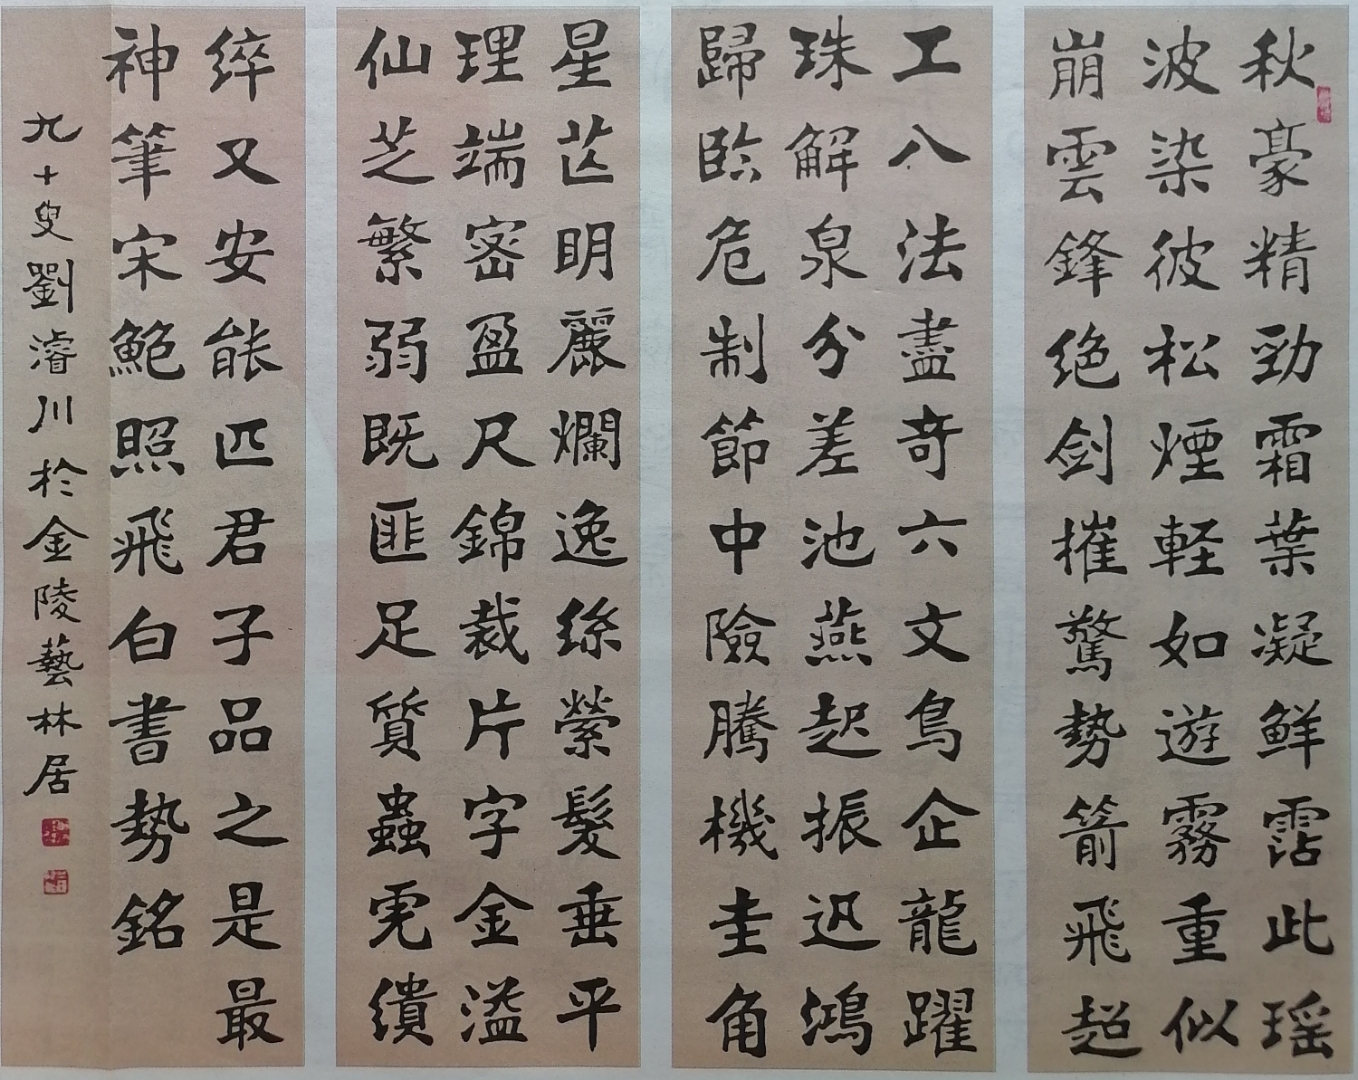 秋豪精勁霜葉凝鮮霑此瑶
波染彼松煙軽如遊霧重似
崩雲鋒绝剑摧驚勢箭飛超
工八法盡奇六文鳥企龍躍
珠解泉分差池燕起振迅鴻
歸臨危制節中險騰機圭角
星芒明麗爛逸絲縈髮垂平
理端密盈尺錦裁片字金溢
仙芝繁弱既匪足質蟲虎繢
綷又安能匹君子品之是最
神筆宋鮑照飛白書勢銘
九十叟劉濬川於金陵藝林居